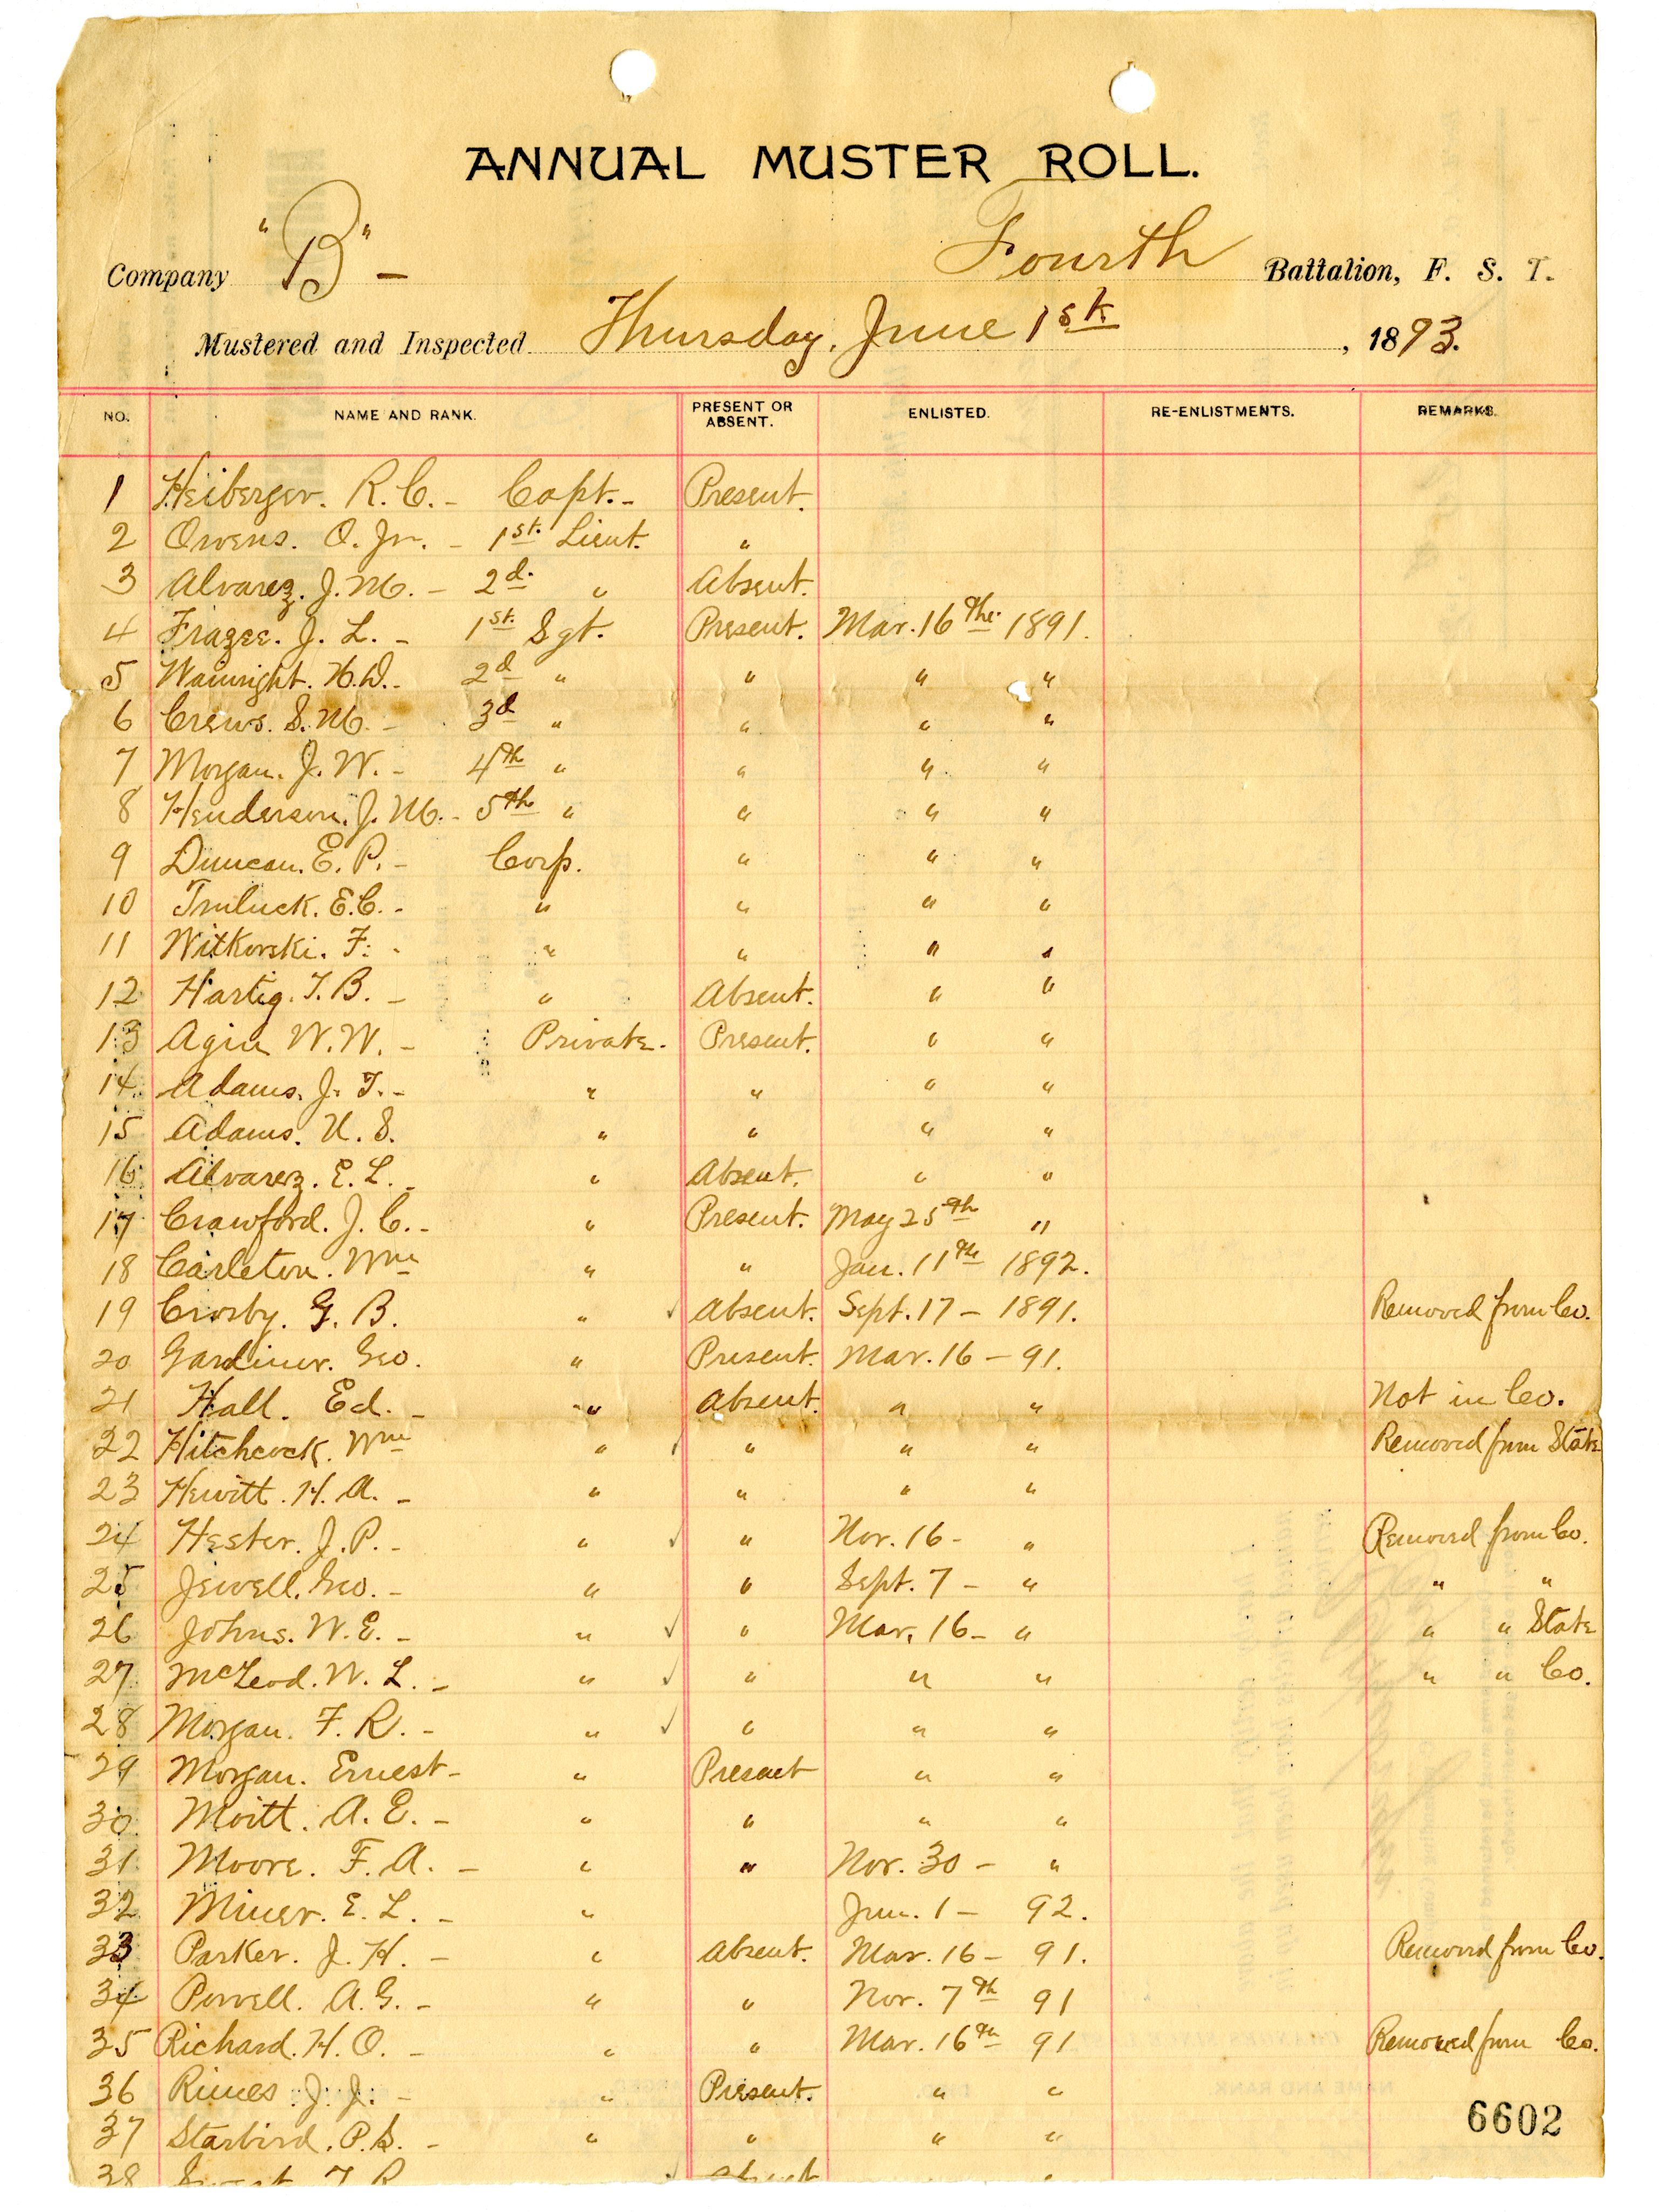 ANNUAL MUSTER ROLL.
Company "B" - Fourth Battalion, F. S. T.
Mustered and Inspected Thursday, June 1st, 1893.
NO. NAME AND RANK. PRESENT OR ABSENT. ENLISTED. RE-ENLISTMENTS. REMARKS.
1 Heiberger. R. C. - Capt. - Present.
2 Owens. O. Jr. - 1st. Lieut. "
3 Alvarez. J. M. - 2d. " Absent.
4 Frazee. J. L. - 1st. Sgt. Present. Mar. 16th. 1891.
5 Wainright. H. D. - 2d " " " "
6 Crews. S. M. - 3d " " " "
7 Morgan. J. W. - 4th " " " "
8 Henderson. J. M. - 5th " " " "
9 Duncan. E. P. - Corp. " " "
10 Truluck. E. C. - " " " "
11 Witkovski. F. - " " " "
12 Hartig. T. B. - " Absent. " "
13 Agin W. W. - Private. Present. " "
14 Adams. J. T. - " " " "
15 Adams. U. S. " " " "
16 Alvarez. E. L. - " Absent. " "
17 Crawford. J. C. - " Present. May 25th "
18 Carleton. Wm " " Jan. 11th 1892.
19 Crosby. G. B. " ✓ Absent. Sept. 17 - 1891. Removed from Co.
20 Gardiner. Geo. " Present. Mar. 16 - 91.
21 Hall. Ed. - " Absent. " " Not in Co.
22 Hitchcock. Wm " ✓ " " " Removed from State
23 Hewitt. H. A. - " " " "
24 Hester. J. P. - " ✓ " Nov. 16 - " Removed from Co.
25 Jewell. Geo. - " " Sept. 7 - " " "
26 Johns. W. E. - " ✓ " Mar. 16 - " " " State
27 McLeod. W. L. - " ✓ " " " " " Co.
28 Morgan. F. R. - " ✓ " " "
29 Morgan. Ernest - " Present " "
30 Moitt. A. E. - " " " "
31 Moore. F. A. - " " Nov. 30 - "
32 Miner. E. L. - " 1 - 92.
33 Parker. J. H. - " Absent. Mar. 16 - 91. Removed from Co.
34 Powell. A. G. - " " Nov. 7th 91
35 Richard. H. O. - " " Mar. 16th 91 Removed from Co.
36 Rimes J. J. - " Present. " "
37 Starbird. P. S. - " " " "
38
6602